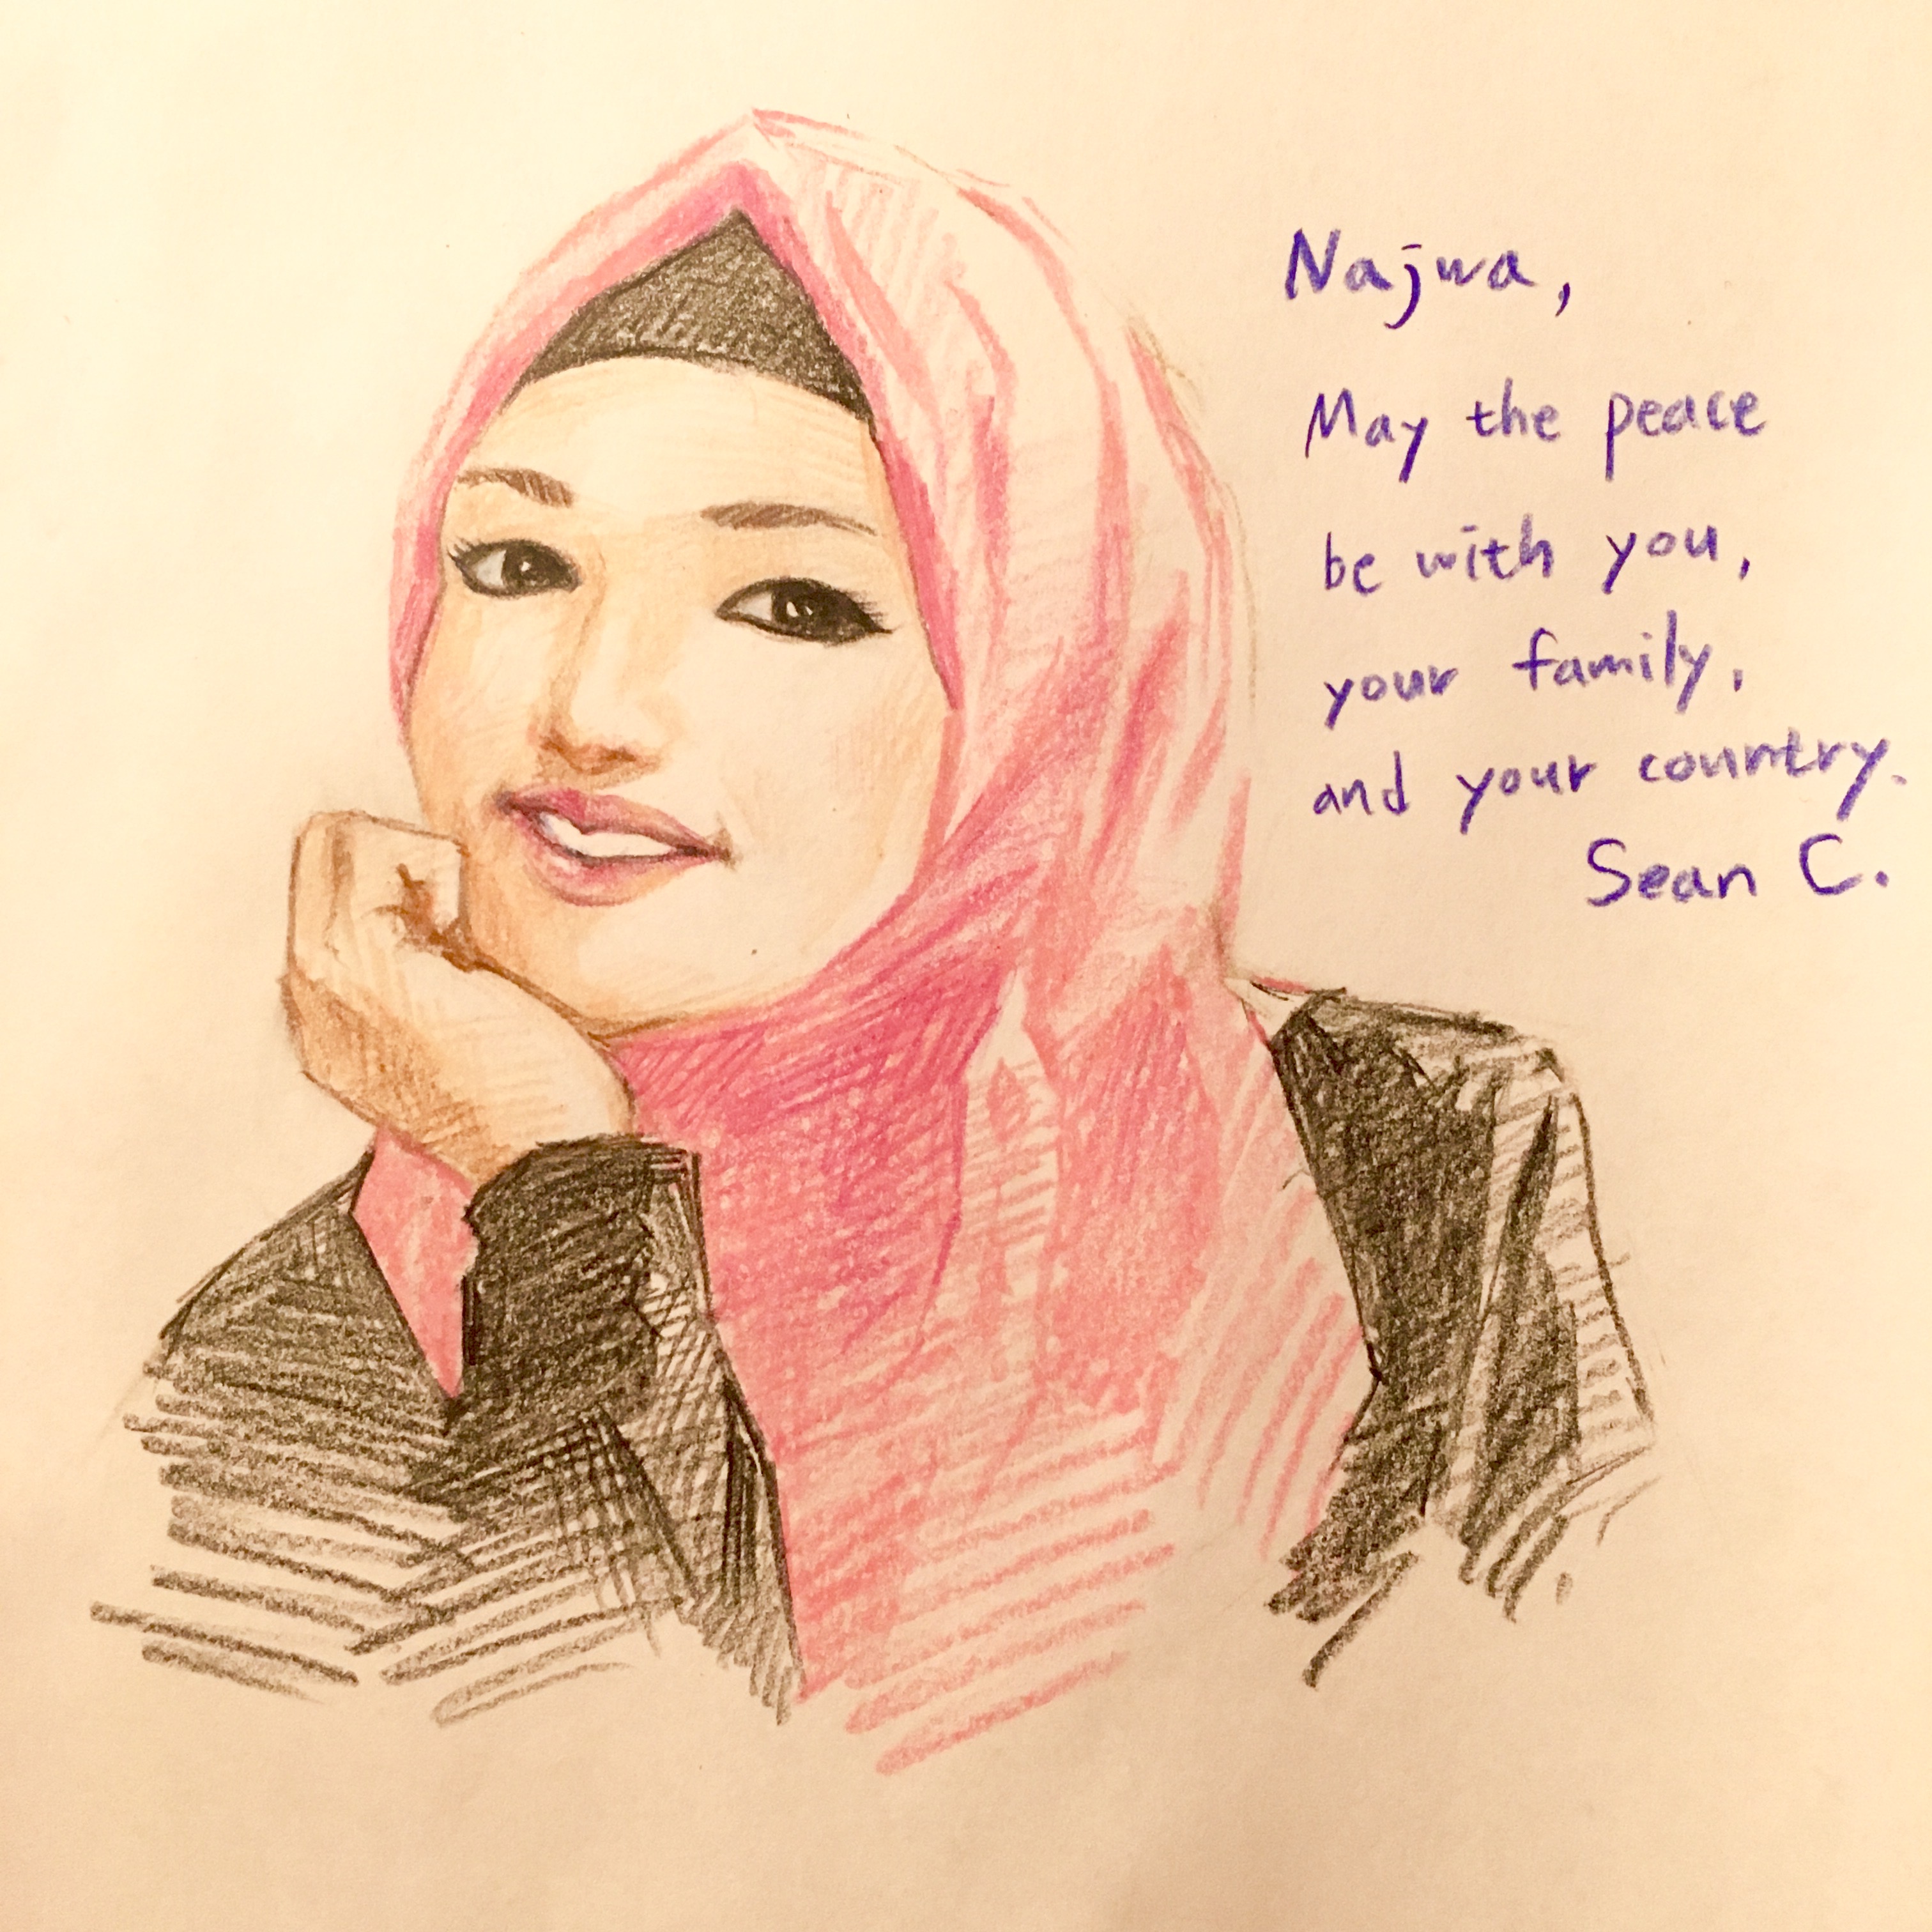 Najwa,
May the peace
be with you,
your family,
and your country.
Sean C.